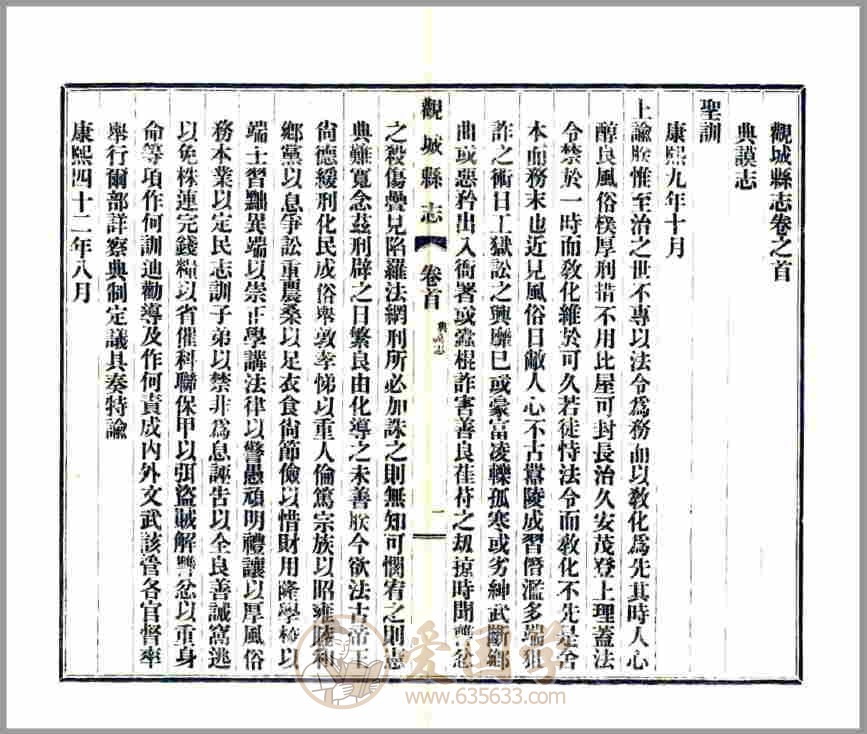 觀城縣志卷之首
典謨志
聖訓
康熙九年十月
上諭朕惟至治之世不專以法令爲務而以敎化爲先其時人心
醇良風俗樸厚刑措不用比屋可封長治久安茂登上理蓋法
令禁於一時而敎化維於可久若徒恃法令而敎化不先是舍
本而務末也近見風俗日敝人心不古囂陵成習僭濫多端狙
詐之術日工獄訟之興靡已或豪富凌轢孤寒或劣紳武斷鄉
曲或惡矜出入衙署或蠹棍詐害善良萑苻之刼掠時聞讐忿
觀城縣志
卷首
典謨志
一
之殺傷疊見陷羅法網刑所必加誅之則無知可憫宥之則憲
典難寬念茲刑辟之日繁良由化導之未善朕今欲法古帝王
尙德緩刑化民成俗舉敦孝悌以重人倫篤宗族以昭雍睦和
鄉黨以息爭訟重農桑以足衣食尙節儉以惜財用隆學校以
端士習黜異端以崇正學講法律以警愚頑明禮讓以厚風俗
務本業以定民志訓子弟以禁非爲息誣告以全良善誡窩逃
以免株連完錢糧以省催科聯保甲以弭盜賊解讐忿以重身
命等項作何訓迪勸導及作何責成内外文武該管各官督率
舉行爾部詳察典制定議具奏特諭
康熙四十二年八月
爱国学
www.635633.com